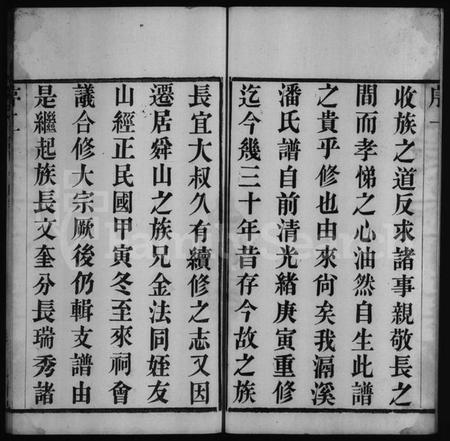 收族之道反求諸事親敬長之
間而孝悌之心油然自生此譜
之貴乎修也由來尙矣我滆溪
潘氏譜自前清光緒庚寅重修
迄今幾三十年昔存今故之族
長宜大叔久有續修之志又因
遷居舜山之族兄金法同姪友
山經正民國甲寅冬至來祠會
議合修大宗厥後仍輯支譜由
是繼起族長文奎分長瑞秀諸